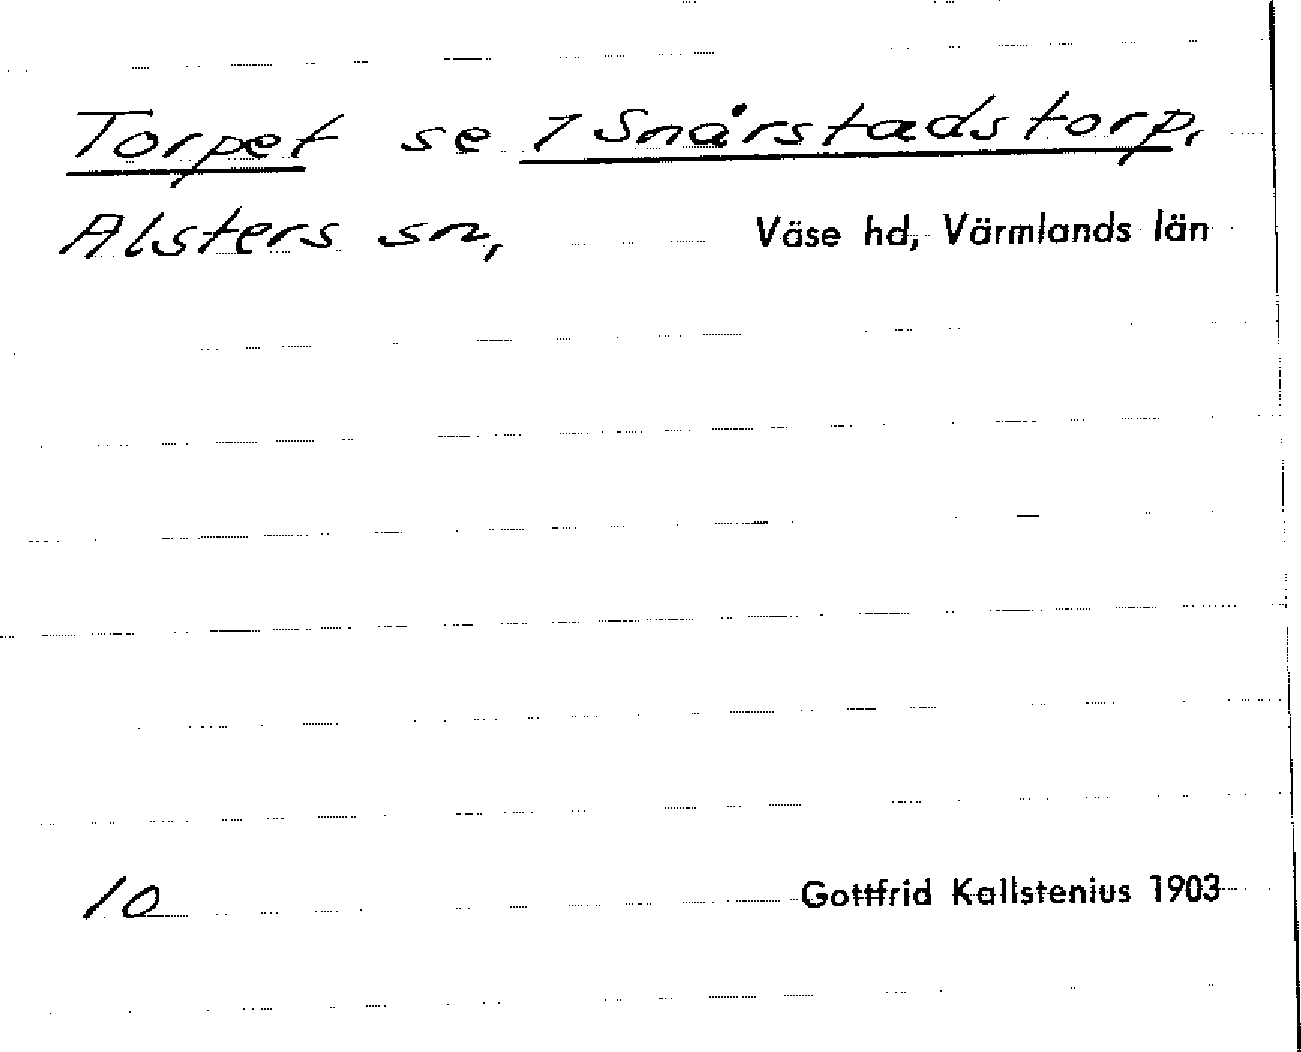 Torpet se 1 Snårstadstorp,
Alsters sn, Väse hd, Värmlands län
10 Gottfrid Kallstenius 1903